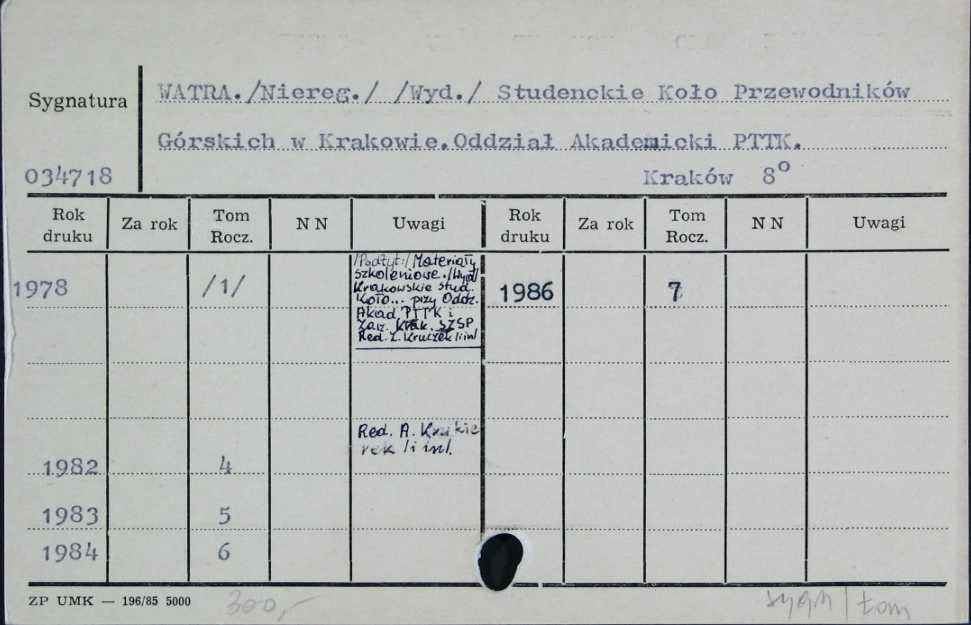 WATRA./Niereg./ /Wyd./ Studenckie Koło Przewodników
Sygnatura
Górskich w Krakowie.Oddział Akademicki PTTK.
034718 Kraków 8°
Rok druku Za rok Tom Rocz. N N Uwagi Rok druku Za rok Tom Rocz. N N Uwagi
/Podtyt:/ Materiały
szkoleniowe./Wyd/
Krakowskie Stud.
Koło... przy Oddz.
Akad. PTTK i
Zarz. Krak. SZSP
Red. Z. Kruczek /i in/
1978 /1/ 1986 7
Red. A.
rek /i in/.
1982 4
1983 5
1984 6
ZP UMK — 196/85 5000 300,- sygn/tom